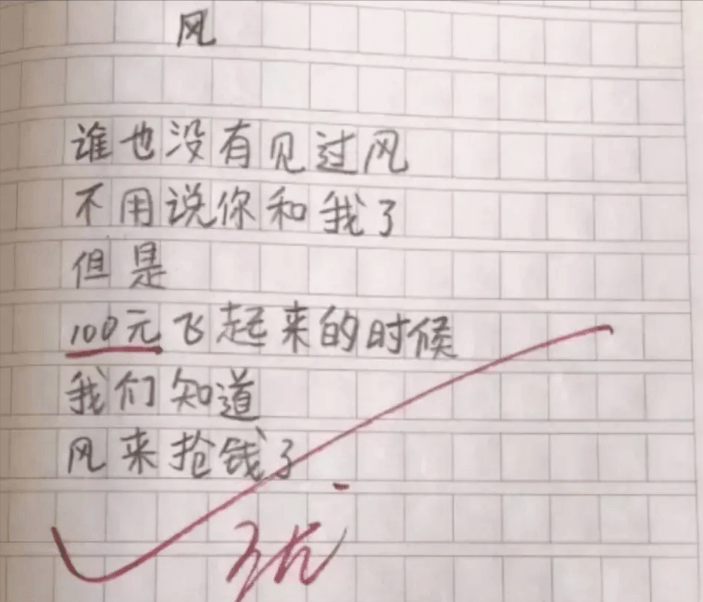 风
谁也没有见过风
不用说你和我了
但是
100元飞起来的时候
我们知道
风来抢钱了
优